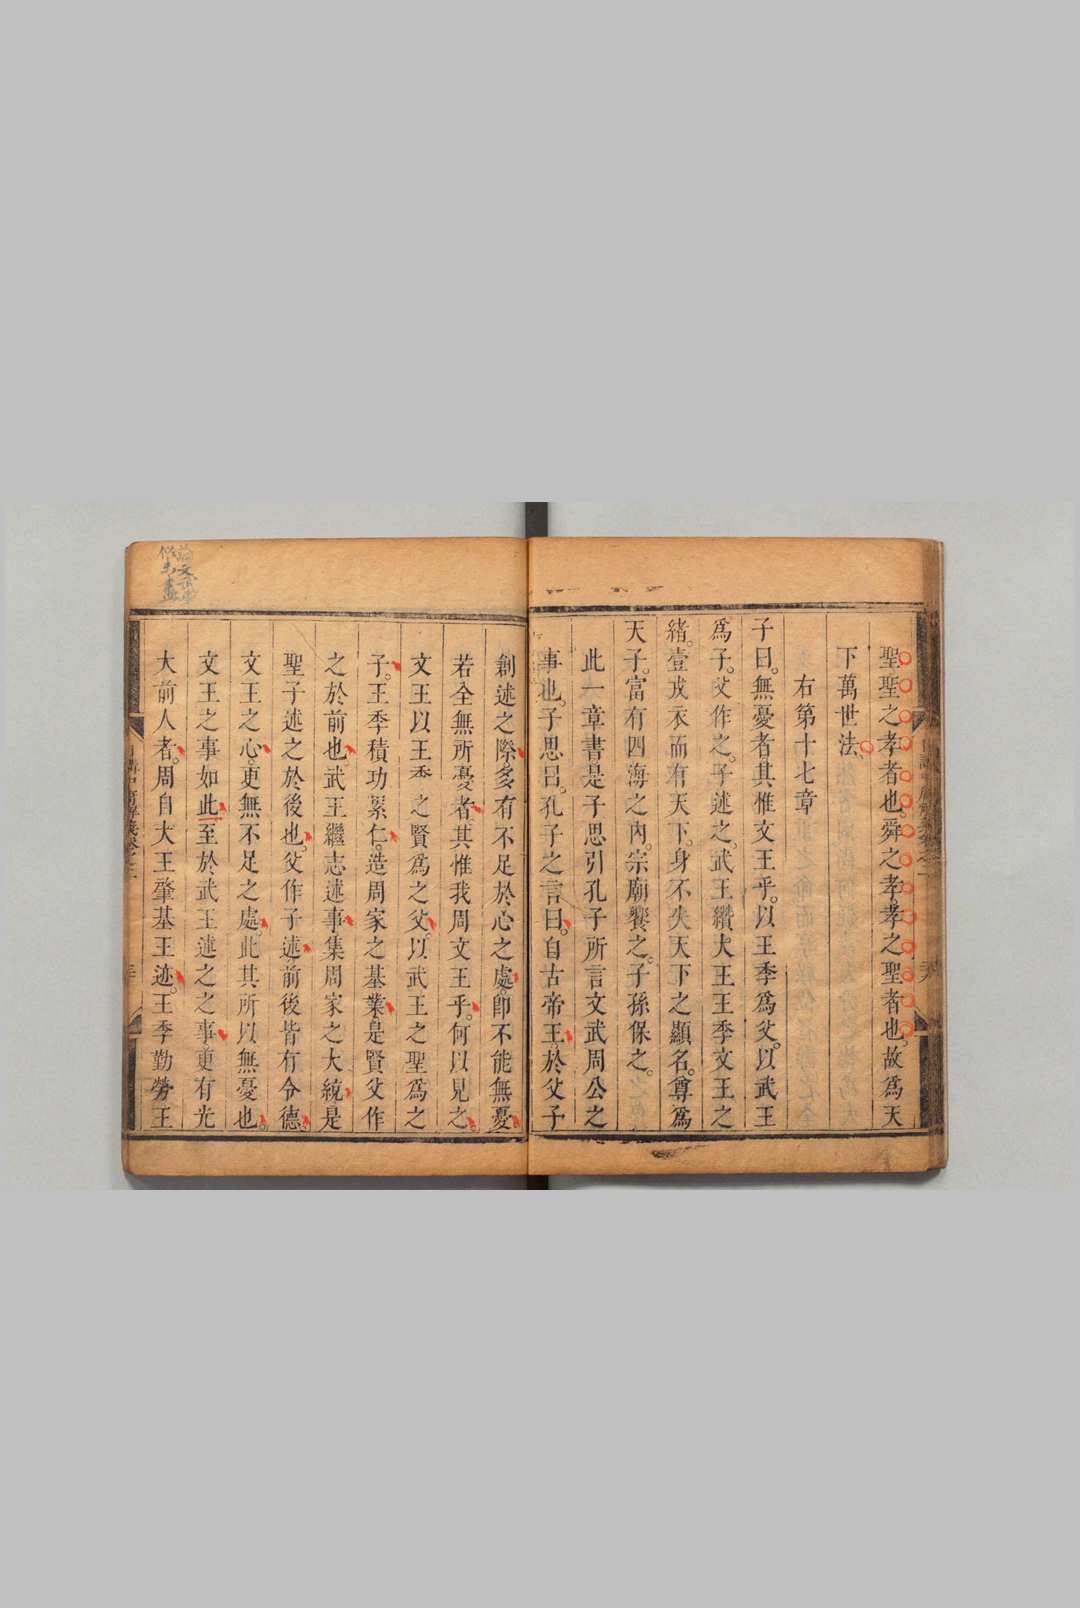 聖聖之孝者也。舜之孝孝之聖者也。故爲天
下萬世法、
右第十七章
子曰。無憂者其惟文王乎。以王季爲父。以武王
爲子。父作之。子述之。武王纘大王王季文王之
緒。壹戎衣而有天下。身不失天下之顯名。尊爲
天子。富有四海之內。宗廟饗之。子孫保之。
此一章書是子思引孔子所言文武周公之
事也。子思曰。孔子之言曰。自古帝王。於父子
創述之際多有不足於心之處。卽不能無憂
若全無所憂者。其惟我周文王乎。何以見之。
文王以王季之賢爲之父。以武王之聖爲之
子。王季積功累仁。造周家之基業是賢父作
之於前也武王繼志述事集周家之大統是
聖子述之於後也。父作子述前後皆有令德。
文王之心。更無不足之處。此其所以無憂也。
文王之事如此至於武王述之之事更有光
大前人者。周自大王肇基王迹。王季勤勞王